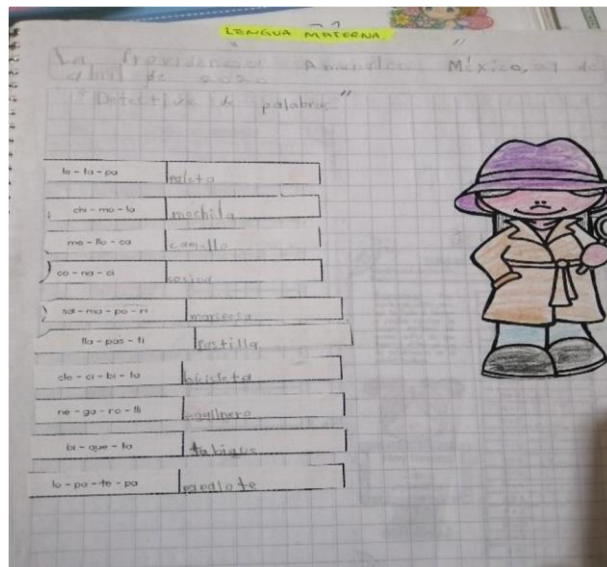 LENGUA MATERNA
La Providencia Amanalco México, 27 de
abril de 2020
"Detective de palabras"
le - ta - pa paleta
chi - mo - la mochila
me - llo - ca camello
co - na - ci cosina
sa - ma - po - ri mariposa
lla - pas - ti pastilla
cle - ci - bi - ta bicicleta
ne - ga - ro - lli gallinero
bi - que - ta tabique
lo - pa - te - pa papalote